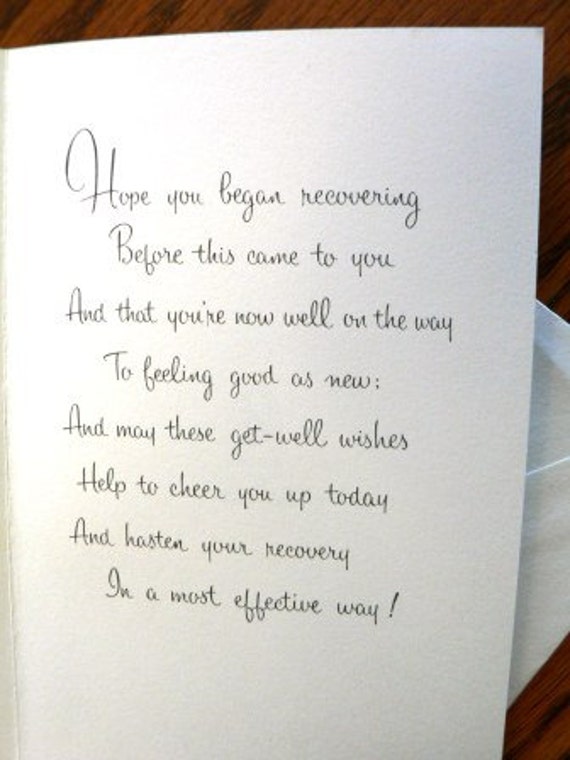 Hope you began recovering
Before this came to you
And that you're now well on the way
To feeling good as new;
And may these get-well wishes
Help to cheer you up today
And hasten your recovery
In a most effective way!